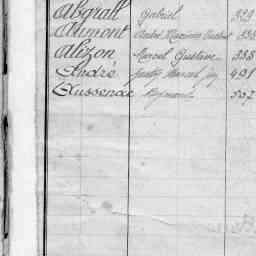 Abgrall Gabriel 329
Aumont André Maximin 338
Alizon Marcel Gustave 338
André Marcel 491
Aussenac Raymond 507